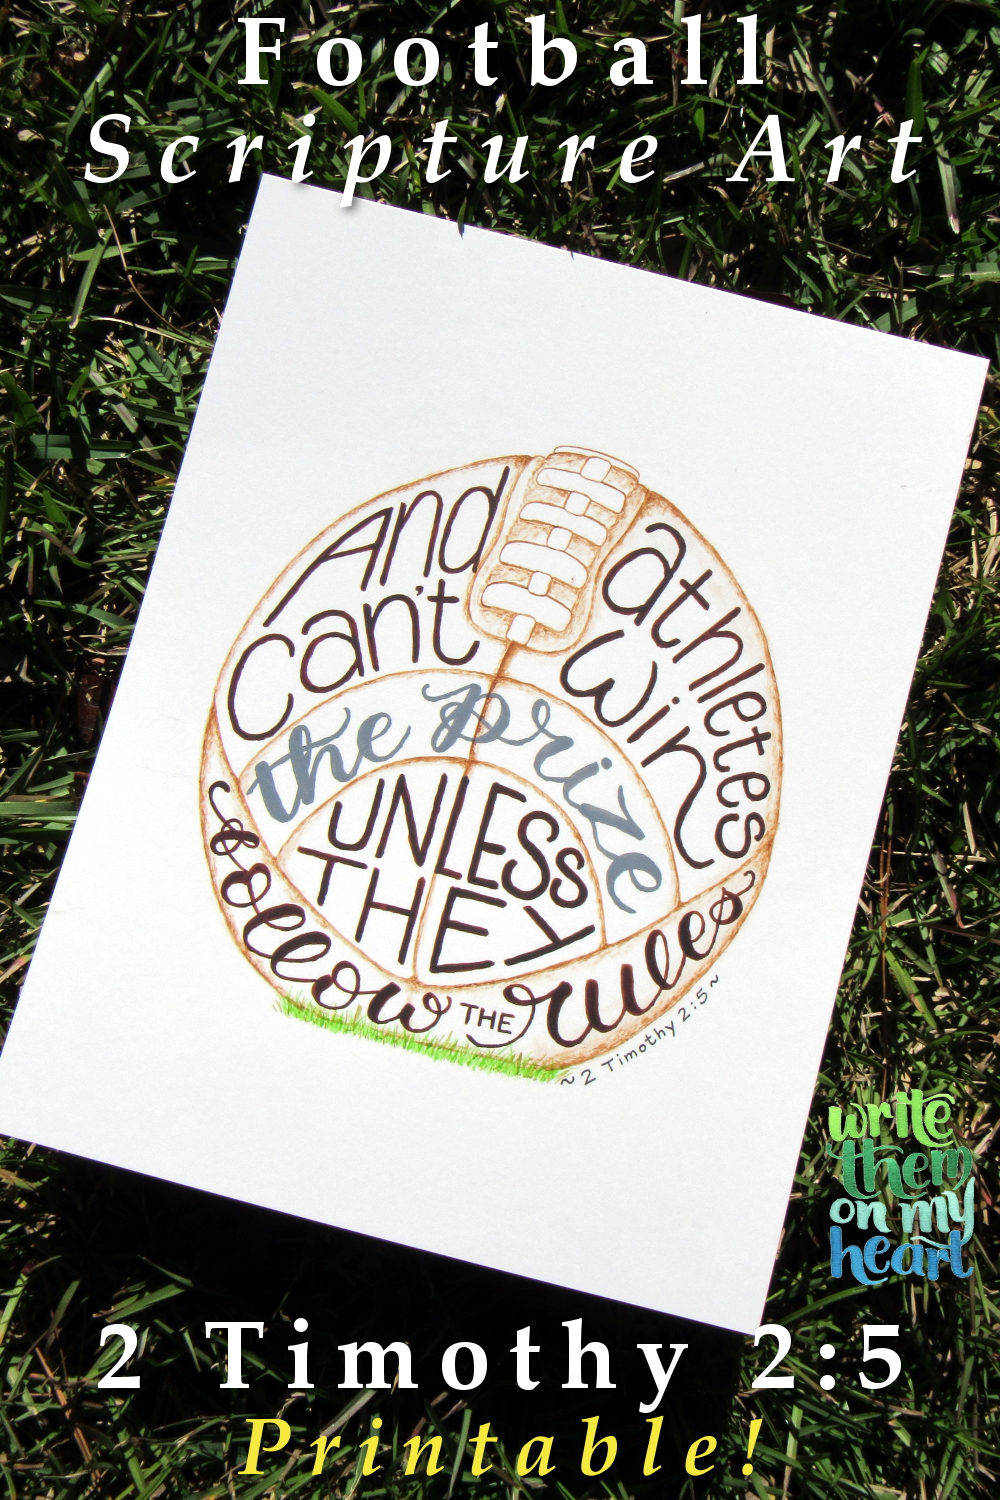 Football
Scripture Art
And athletes
Can't win
the prize
UNLESS
THEY
follow THE rules
~2 Timothy 2:5~
write
them
on my
heart
2 Timothy 2:5
Printable!